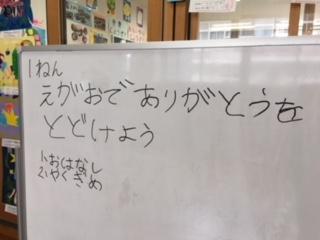 1ねん
えがおでありがとうを
とどけよう
1.おはなし
2.やくぎめ